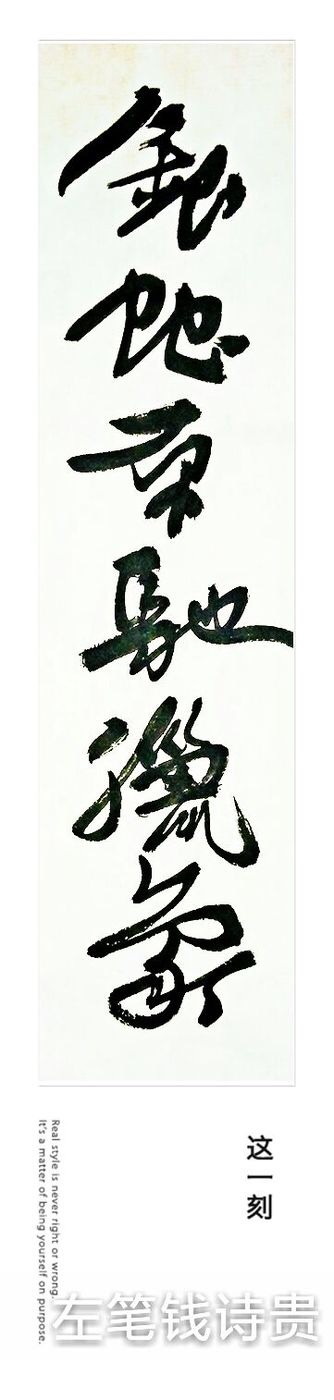 銀蛇原馳臘象
这一刻
Real style is never right or wrong.
It's a matter of being yourself on purpose.
左笔钱诗贵